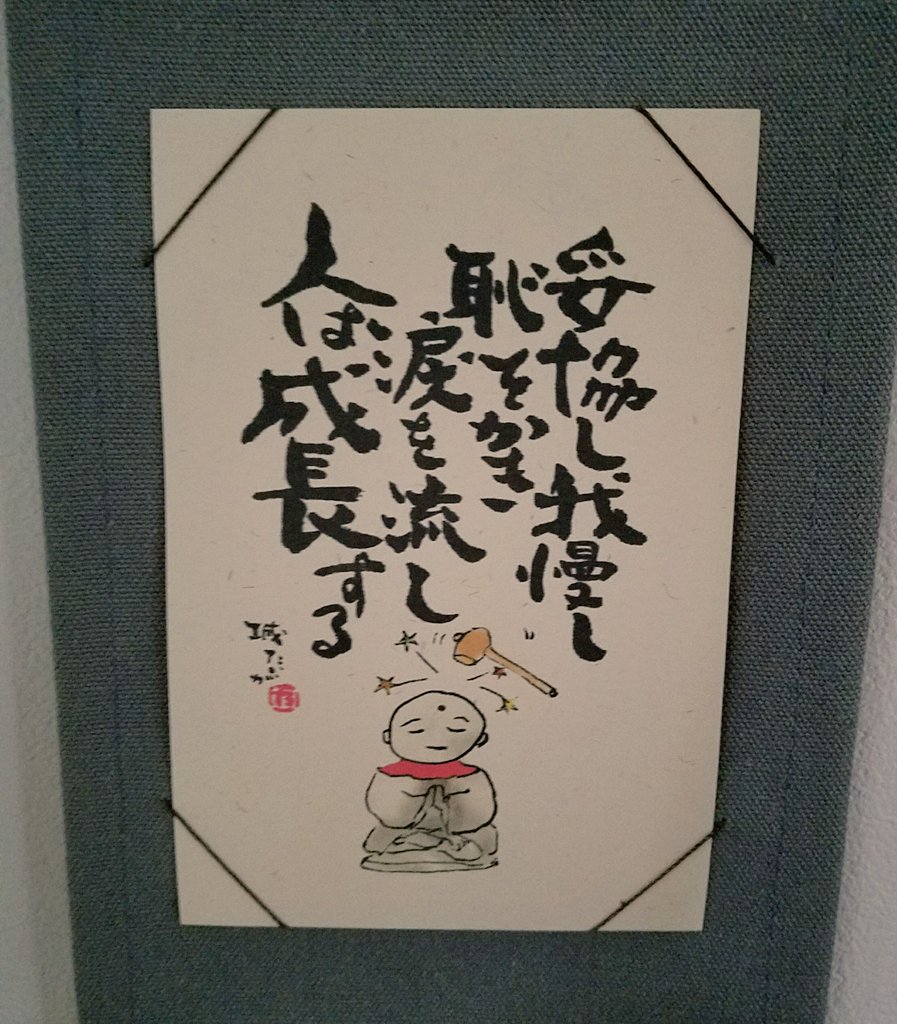 妥協し我慢し
恥をかき
涙を流し
人は成長する